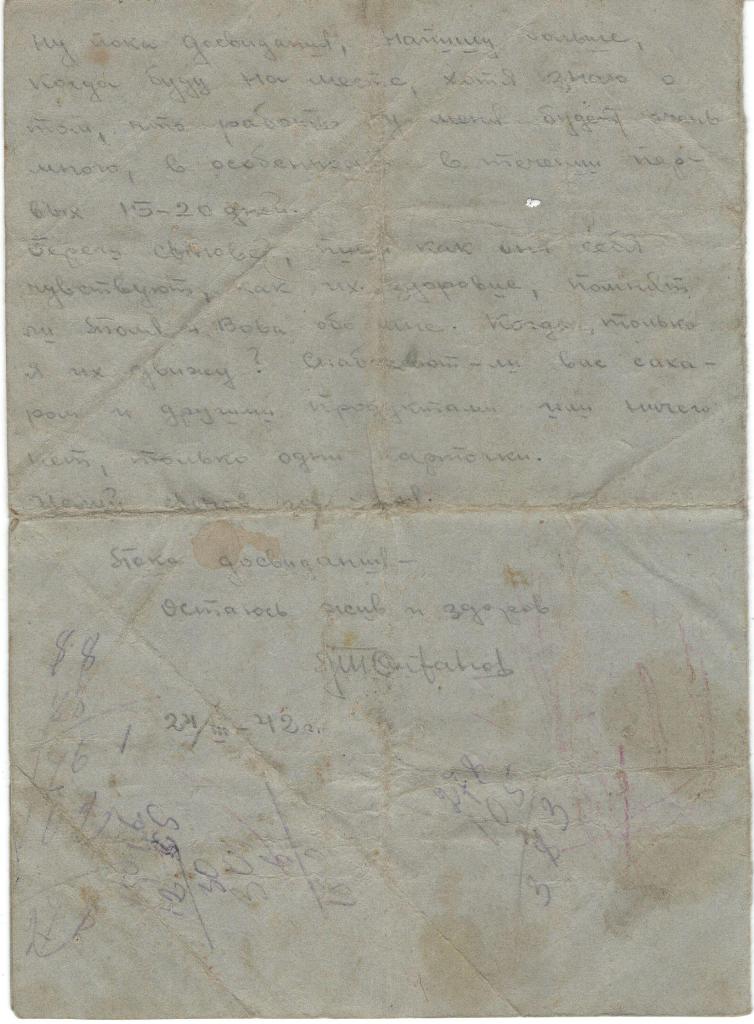 ну пока досвидания, напишу больше,
когда буду на месте, хотя знаю о
том, что работы у меня будет очень
много, в особенности в течении пер-
вых 15-20 дней.
Береги сынове, пиши как они себя
чувствуют, как их здоровие, помнят
ли Толя и Вова обо мне. Когда только
я их увижу? Снабжают-ли вас саха-
ром и другими продуктами или ничего
нет, только одни карточки.
Пока досвидания -
Остаюсь жив и здоров
24/III-42 г.
88